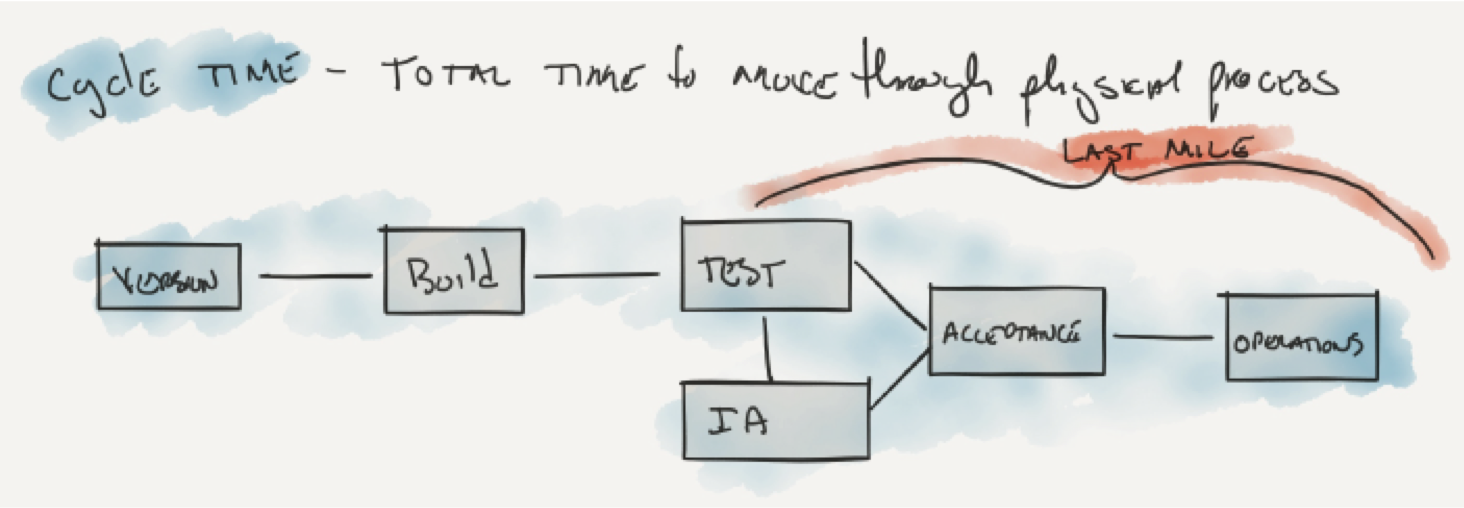 Cycle TIME - TOTAL TIME to move through physical process
LAST MILE
VERSION
Build
TEST
ACCEPTANCE
OPERATIONS
IA